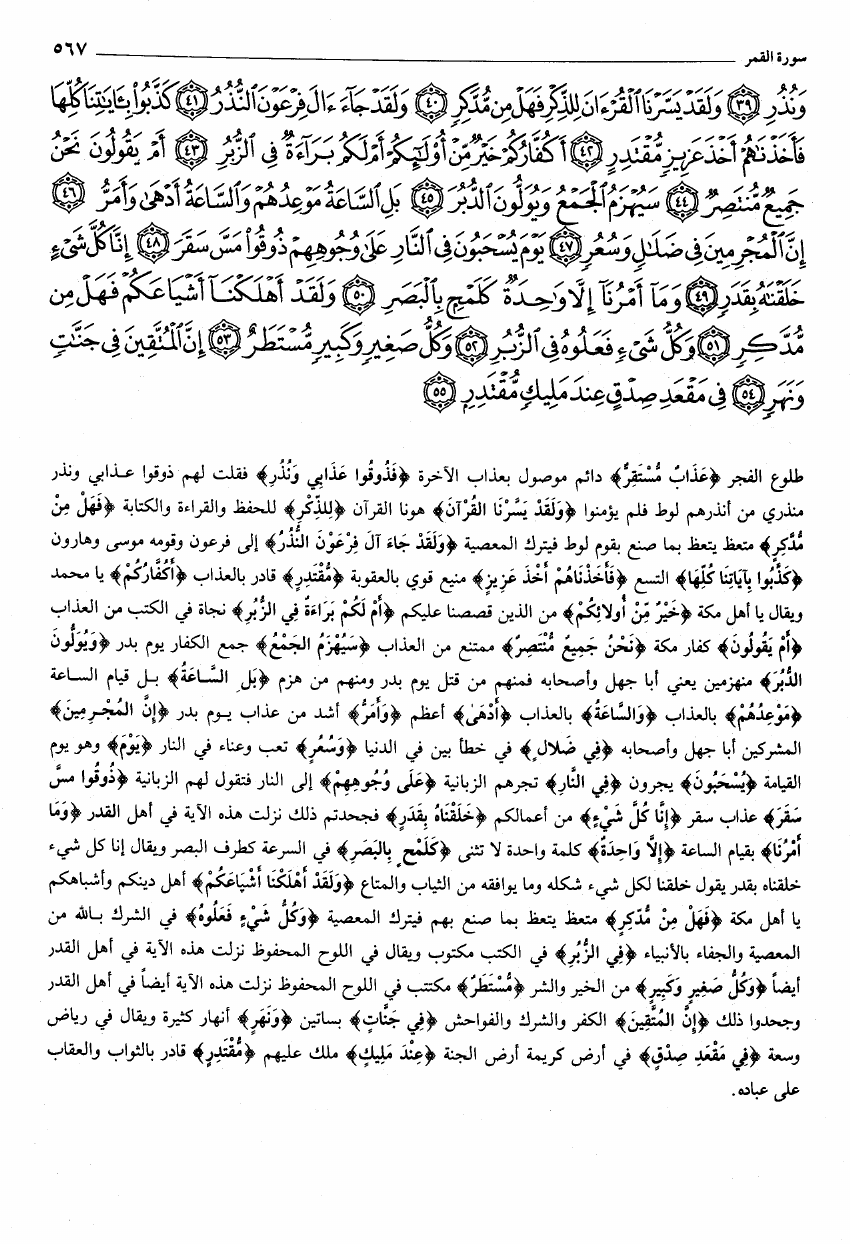 سورة القمر ٥٦٧
وَنُذُرِ ﴿٣٩﴾ وَلَقَدْ يَسَّرْنَا ٱلْقُرْءَانَ لِلذِّكْرِ فَهَلْ مِن مُّدَّكِرٍ ﴿٤٠﴾ وَلَقَدْ جَآءَ ءَالَ فِرْعَوْنَ ٱلنُّذُرُ ﴿٤١﴾ كَذَّبُوا۟ بِـَٔايَـٰتِنَا كُلِّهَا
فَأَخَذْنَـٰهُمْ أَخْذَ عَزِيزٍ مُّقْتَدِرٍ ﴿٤٢﴾ أَكُفَّارُكُمْ خَيْرٌ مِّنْ أُو۟لَـٰٓئِكُمْ أَمْ لَكُم بَرَآءَةٌ فِى ٱلزُّبُرِ ﴿٤٣﴾ أَمْ يَقُولُونَ نَحْنُ
جَمِيعٌ مُّنتَصِرٌ ﴿٤٤﴾ سَيُهْزَمُ ٱلْجَمْعُ وَيُوَلُّونَ ٱلدُّبُرَ ﴿٤٥﴾ بَلِ ٱلسَّاعَةُ مَوْعِدُهُمْ وَٱلسَّاعَةُ أَدْهَىٰ وَأَمَرُّ ﴿٤٦﴾
إِنَّ ٱلْمُجْرِمِينَ فِى ضَلَـٰلٍ وَسُعُرٍ ﴿٤٧﴾ يَوْمَ يُسْحَبُونَ فِى ٱلنَّارِ عَلَىٰ وُجُوهِهِمْ ذُوقُوا۟ مَسَّ سَقَرَ ﴿٤٨﴾ إِنَّا كُلَّ شَىْءٍ
خَلَقْنَـٰهُ بِقَدَرٍ ﴿٤٩﴾ وَمَآ أَمْرُنَآ إِلَّا وَٰحِدَةٌ كَلَمْحٍ بِٱلْبَصَرِ ﴿٥٠﴾ وَلَقَدْ أَهْلَكْنَآ أَشْيَاعَكُمْ فَهَلْ مِن
مُّدَّكِرٍ ﴿٥١﴾ وَكُلُّ شَىْءٍ فَعَلُوهُ فِى ٱلزُّبُرِ ﴿٥٢﴾ وَكُلُّ صَغِيرٍ وَكَبِيرٍ مُّسْتَطَرٌ ﴿٥٣﴾ إِنَّ ٱلْمُتَّقِينَ فِى جَنَّـٰتٍ
وَنَهَرٍ ﴿٥٤﴾ فِى مَقْعَدِ صِدْقٍ عِندَ مَلِيكٍ مُّقْتَدِرٍ ﴿٥٥﴾
طلوع الفجر ﴿عَذَابٌ مُّسْتَقِرٌّ﴾ دائم موصول بعذاب الآخرة ﴿فَذُوقُوا عَذَابِي وَنُذُرِ﴾ فقلت لهم ذوقوا عـذابي ونذر
منذري من أنذرهم لوط فلم يؤمنوا ﴿وَلَقَدْ يَسَّرْنَا القُرْآنَ﴾ هونا القرآن ﴿لِلذِّكْرِ﴾ للحفظ والقراءة والكتابة ﴿فَهَلْ مِنْ
مُّدَّكِرٍ﴾ متعظ يتعظ بما صنع بقوم لوط فيترك المعصية ﴿وَلَقَدْ جَاءَ آلَ فِرْعَوْنَ النُّذُرُ﴾ إلى فرعون وقومه موسى وهارون
﴿كَذَّبُوا بِآيَاتِنَا كُلِّهَا﴾ التسع ﴿فَأَخَذْنَاهُمْ أَخْذَ عَزِيزٍ﴾ منيع قوي بالعقوبة ﴿مُّقْتَدِرٍ﴾ قادر بالعذاب ﴿أَكُفَّارُكُمْ﴾ يا محمد
ويقال يا أهل مكة ﴿خَيْرٌ مِّنْ أُولائِكُمْ﴾ من الذين قصصنا عليكم ﴿أَمْ لَكُمْ بَرَاءَةٌ فِي الزُّبُرِ﴾ نجاة في الكتب من العذاب
﴿أَمْ يَقُولُونَ﴾ كفار مكة ﴿نَحْنُ جَمِيعٌ مُنْتَصِرٌ﴾ ممتنع من العذاب ﴿سَيُهْزَمُ الجَمْعُ﴾ جمع الكفار يوم بدر ﴿وَيُوَلُّونَ
الدُّبُرَ﴾ منهزمين يعني أبا جهل وأصحابه فمنهم من قتل يوم بدر ومنهم من هزم ﴿بَلِ السَّاعَةُ﴾ بـل قيام الساعة
﴿مَوْعِدُهُمْ﴾ بالعذاب ﴿وَالسَّاعَةُ﴾ بالعذاب ﴿أَدْهَىٰ﴾ أعظم ﴿وَأَمَرُّ﴾ أشد من عذاب يـوم بدر ﴿إِنَّ المُجْرِمِينَ﴾
المشركين أبا جهل وأصحابه ﴿فِي ضَلالٍ﴾ في خطأ بين في الدنيا ﴿وَسُعُرٍ﴾ تعب وعناء في النار ﴿يَوْمَ﴾ وهو يوم
القيامة ﴿يُسْحَبُونَ﴾ يجرون ﴿فِي النَّارِ﴾ تجرهم الزبانية ﴿عَلَى وُجُوهِهِمْ﴾ إلى النار فتقول لهم الزبانية ﴿ذُوقُوا مَسَّ
سَقَرَ﴾ عذاب سقر ﴿إِنَّا كُلَّ شَيْءٍ﴾ من أعمالكم ﴿خَلَقْنَاهُ بِقَدَرٍ﴾ فجحدتم ذلك نزلت هذه الآية في أهل القدر ﴿وَمَا
أَمْرُنَا﴾ بقيام الساعة ﴿إِلَّا وَاحِدَةٌ﴾ كلمة واحدة لا تثنى ﴿كَلَمْحٍ بِالبَصَرِ﴾ في السرعة كطرف البصر ويقال إنا كل شيء
خلقناه بقدر يقول خلقنا لكل شيء شكله وما يوافقه من الثياب والمتاع ﴿وَلَقَدْ أَهْلَكْنَا أَشْيَاعَكُمْ﴾ أهل دينكم وأشباهكم
يا أهل مكة ﴿فَهَلْ مِنْ مُّدَّكِرٍ﴾ متعظ يتعظ بما صنع بهم فيترك المعصية ﴿وَكُلُّ شَيْءٍ فَعَلُوهُ﴾ في الشرك بـالله من
المعصية والجفاء بالأنبياء ﴿فِي الزُّبُرِ﴾ في الكتب مكتوب ويقال في اللوح المحفوظ نزلت هذه الآية في أهل القدر
أيضاً ﴿وَكُلُّ صَغِيرٍ وَكَبِيرٍ﴾ من الخير والشر ﴿مُّسْتَطَرٌ﴾ مكتتب في اللوح المحفوظ نزلت هذه الآية أيضاً في أهل القدر
وجحدوا ذلك ﴿إِنَّ المُتَّقِينَ﴾ الكفر والشرك والفواحش ﴿فِي جَنَّاتٍ﴾ بساتين ﴿وَنَهَرٍ﴾ أنهار كثيرة ويقال في رياض
وسعة ﴿فِي مَقْعَدِ صِدْقٍ﴾ في أرض كريمة أرض الجنة ﴿عِنْدَ مَلِيكٍ﴾ ملك عليهم ﴿مُّقْتَدِرٍ﴾ قادر بالثواب والعقاب
على عباده.